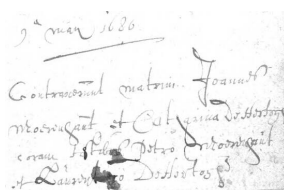 9ª may 1686
Contraxerunt matrim. Joannes
Moerenhaut et Catharina DeHertog
coram Petro Moerenhaut
et Laurentio DeHertog